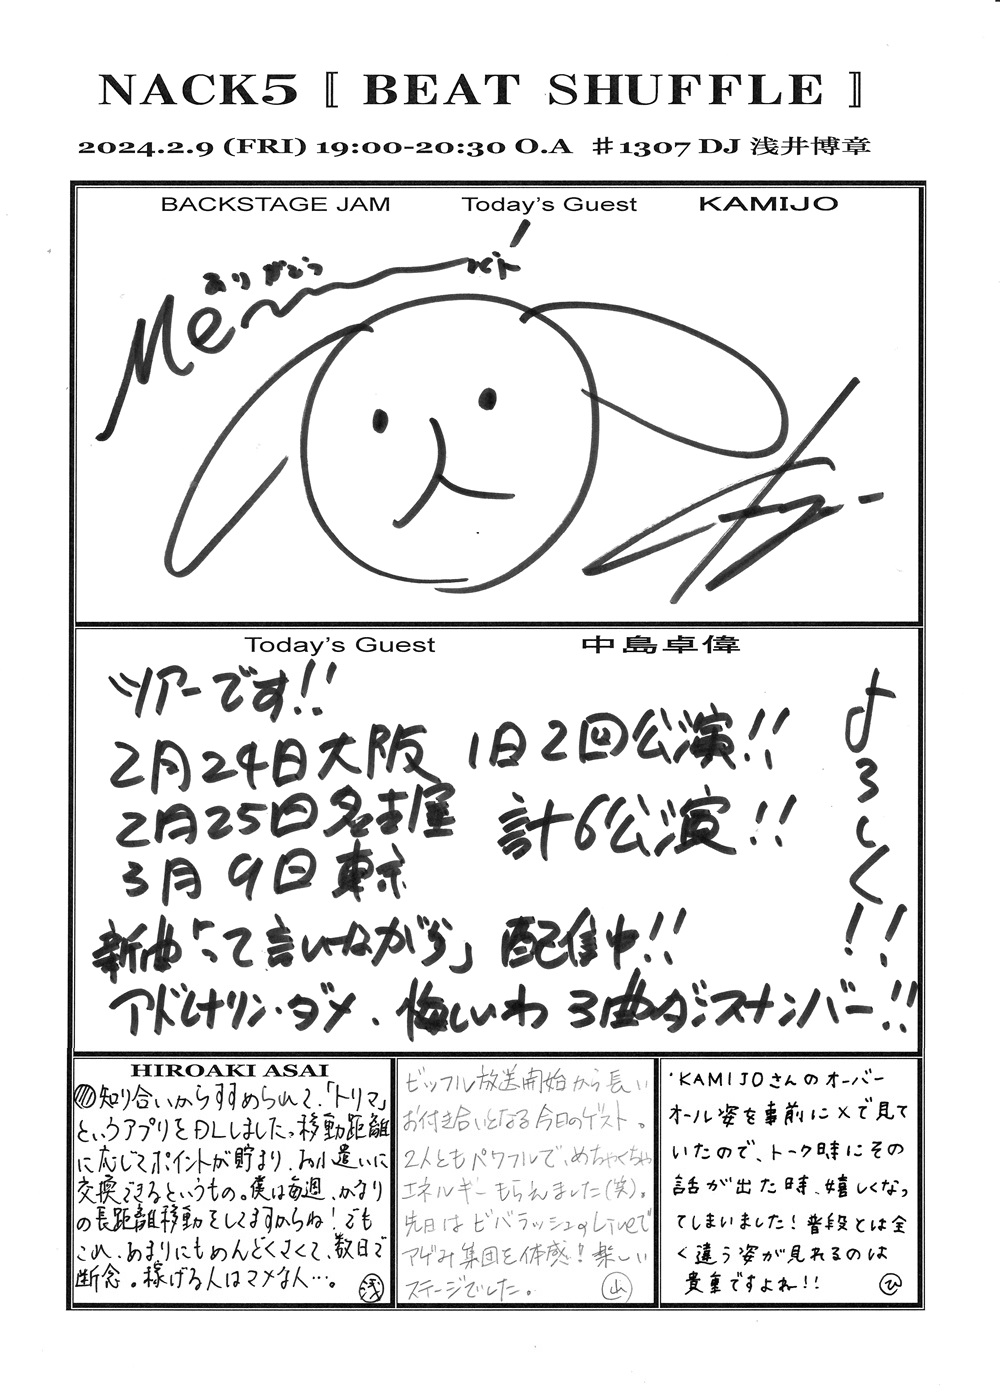 NACK5 〚 BEAT SHUFFLE 〛
2024.2.9 (FRI) 19:00-20:30 O.A ♯1307 DJ 浅井博章
BACKSTAGE JAM Today's Guest KAMIJO
ありがとう
Today's Guest 中島卓偉
ツアーです!!
2月24日大阪 1日2回公演!!
2月25日名古屋 計6公演!!
3月9日東京
よろしく!!
新曲「って言いながら」配信中!!
アドレナリン・ダメ、悔しいわ 3曲ダンスナンバー!!
HIROAKI ASAI
知り合いからすすめられて、「トリマ」
というアプリをDLしました。移動距離
に応じてポイントが貯まり、お小遣いに
交換できるというもの。僕は毎週、かなり
の長距離移動をしてますからね!でも
これ、あまりにもめんどくさくて、数日で
断念。稼げる人はマメな人…。
浅
ビッフル放送開始から長い
お付き合いとなる今日のゲスト。
2人ともパワフルで、めちゃくちゃ
エネルギーもらえました(笑)。
先日はビバラッシュのLiveで
アゲみ集団を体感!楽しい
ステージでした。
山
・KAMIJOさんのオーバー
オール姿を事前にXで見て
いたので、トーク時にその
話が出た時、嬉しくなっ
てしまいました!普段とは全
く違う姿が見れるのは
貴重ですよね!!
ひ